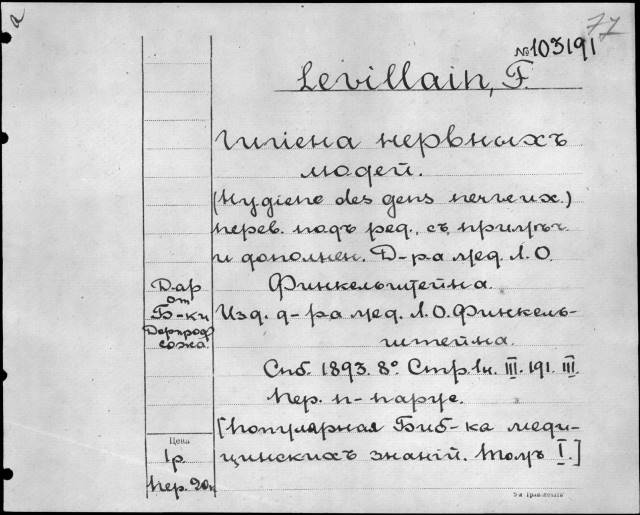 a
77
№103191
Levillain, F.
Гигіена нервныхъ
людей.
(Hygiene des gens nerveux.)
перев. подъ ред., съ примѣч.
и дополнен. Д-ра мед. Л.О.
Финкельштейна.
Д-ар
от
Б-ки
Дорпроф
сожа.
Изд. д-ра мед. Л.О. Финкель-
штейна.
Спб. 1893. 8º. Стр. 1н. III. 191. III.
Пер. п-парус.
[Популярная Биб-ка меди-
цинскихъ знаній. Томъ I.]
Цена
1р.
Пер. 20к